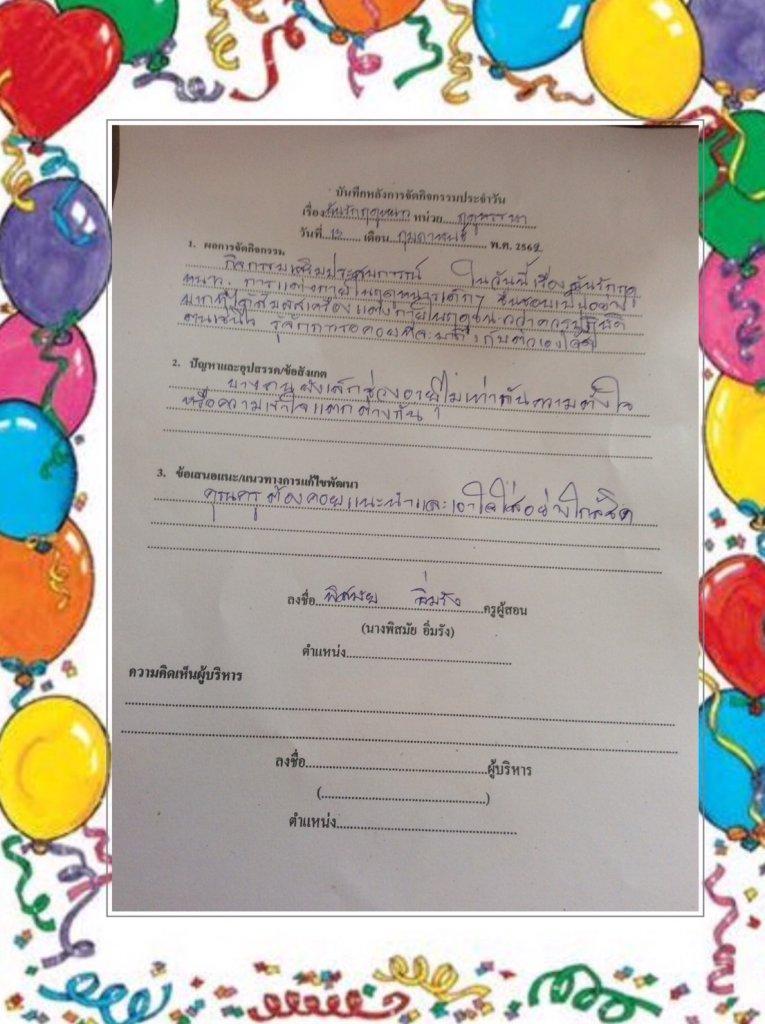 บันทึกหลังการจัดกิจกรรมประจำวัน
เรื่อง ฉันรักฤดูหนาว หน่วย ฤดูหรรษา
วันที่ 12 เดือน กุมภาพันธ์ พ.ศ. 2562
1. ผลการจัดกิจกรรม
กิจกรรมเสริมประสบการณ์ ในวันนี้ เรื่อง ฉันรักฤดู
หนาว การแต่งกายในฤดูหนาวเด็กๆ ชื่นชอบเป็นอย่าง
มากที่ได้สัมผัสเครื่องแต่งกายในฤดู ว่าควรปฏิบัติ
ตนเช่นไร รู้จักการรอคอยที่จะมาถึงกับตัวเอง
2. ปัญหาและอุปสรรค/ข้อสังเกต
บางคนยังเล็กช่วงอายุไม่เท่ากันความตั้งใจ
หรือความเข้าใจแตกต่างกัน
3. ข้อเสนอแนะ/แนวทางการแก้ไขพัฒนา
คุณครูต้องคอยแนะนำและเอาใจใส่อย่างใกล้ชิด
ลงชื่อ พิสมัย อิ่มรัง ครูผู้สอน
(นางพิสมัย อิ่มรัง)
ตำแหน่ง
ความคิดเห็นผู้บริหาร
ลงชื่อ ผู้บริหาร
( )
ตำแหน่ง